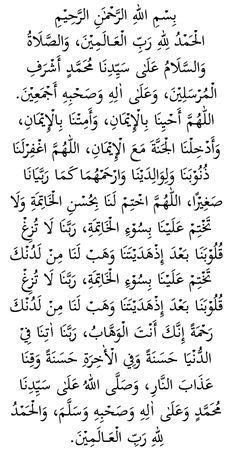 بِسْمِ اللهِ الرَّحْمٰنِ الرَّحِيْمِ
الْحَمْدُ لِلهِ رَبِّ الْعَالَمِيْنَ، وَالصَّلَاةُ
وَالسَّلَامُ عَلَى سَيِّدِنَا مُحَمَّدٍ أَشْرَفِ
الْمُرْسَلِيْنَ، وَعَلَى اٰلِهِ وَصَحْبِهِ أَجْمَعِيْنَ.
اَللَّهُمَّ أَحْيِنَا بِالْإِيْمَانِ، وَأَمِتْنَا بِالْإِيْمَانِ،
وَأَدْخِلْنَا الْجَنَّةَ مَعَ الْإِيْمَانِ، اللَّهُمَّ اغْفِرْلَنَا
ذُنُوْبَنَا وَلِوَالِدَيْنَا وَارْحَمْهُمَا كَمَا رَبَّيَانَا
صَغِيْرًا، اللَّهُمَّ اخْتِمْ لَنَا بِحُسْنِ الْخَاتِمَةِ وَلَا
تَخْتِمْ عَلَيْنَا بِسُوْءِ الْخَاتِمَةِ، رَبَّنَا لَا تُزِغْ
قُلُوْبَنَا بَعْدَ إِذْهَدَيْتَنَا وَهَبْ لَنَا مِنْ لَدُنْكَ
تَخْتِمْ عَلَيْنَا بِسُوْءِ الْخَاتِمَةِ، رَبَّنَا لَا تُزِغْ
قُلُوْبَنَا بَعْدَ إِذْهَدَيْتَنَا وَهَبْ لَنَا مِنْ لَدُنْكَ
رَحْمَةً إِنَّكَ أَنْتَ الْوَهَّابُ، رَبَّنَا اٰتِنَا فِيْ
الدُّنْيَا حَسَنَةً وَفِي الْأٰخِرَةِ حَسَنَةً وَقِنَا
عَذَابَ النَّارِ، وَصَلَّى اللهُ عَلَى سَيِّدِنَا
مُحَمَّدٍ وَعَلَى اٰلِهِ وَصَحْبِهِ وَسَلَّمَ، وَالْحَمْدُ
لِلهِ رَبِّ الْعَالَمِيْنَ.